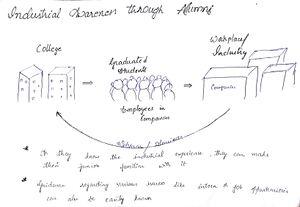 Industrial Awareness through Alumni
College
Graduated
Students
Workplace/
Industry
Companies
Employees in
Companies
Alumni
* As they know the industrial experience, they can make
their junior familiar with it
* Guidance regarding various issues like intern & job opportunities
can also be easily known